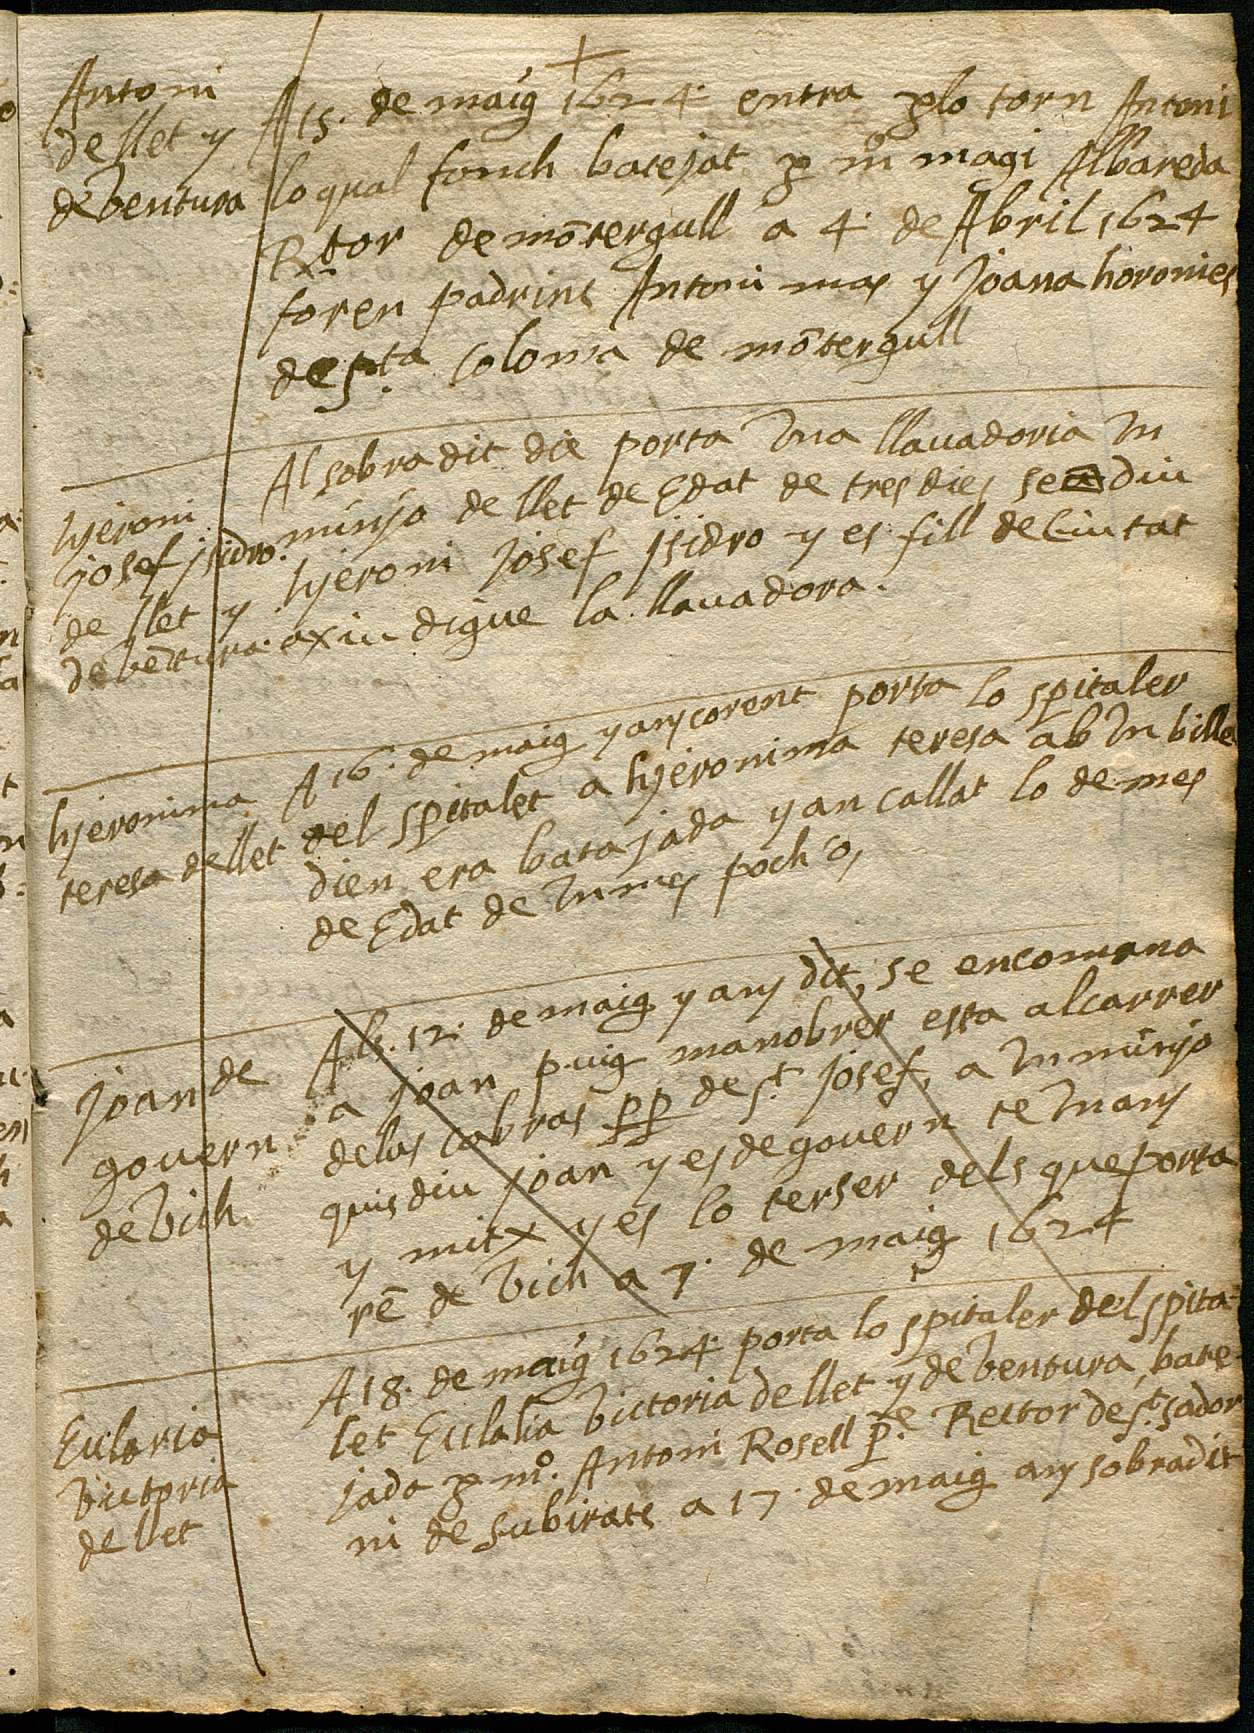 Antoni
de llet y
de ventura
A 15. de maig 1624 entra p lo torn Antoni
lo qual fonch batejat p mº magi Albareda
Rtor de mõtergull a 4. de Abril 1624
foren padrins Antoni mas y Joana horomies
de sta coloma de mõtergull
hjeroni
josef jsidro
de llet y
de vẽtura
Al sobra dit die porta una llavadoria un
minyo de llet de Edat de tres dies se diu
hjeroni Josef Jsidro y es fill de Ciutat
axiu digue la llavadora.
hjeronima
teresa de llet
A 16. de maig y any corent porta lo spitaler
del spitalet a hjeronima teresa ab un billet
dien era batajada y an callat lo de mes
de Edat de un mes poch o,
joan de
govern
de Vich
Als. 12. de maig y any dit, se encomana
a joan puig manobrer esta al carrer
de las cabras pp de st Josef, a un minyo
quis diu joan y es de govern te un any
y mitx y es lo terser dels que porta
rẽ de Vich a 7. de maig 1624
Eularia
victoria
de llet
A 18. de maig 1624 porta lo spitaler del spita-
let Eulalia victoria de llet y de ventura, bate-
jada p mº. Antoni Rosell p.e Rector de st. sador
ni de subirats a 17. de maig any sobradit